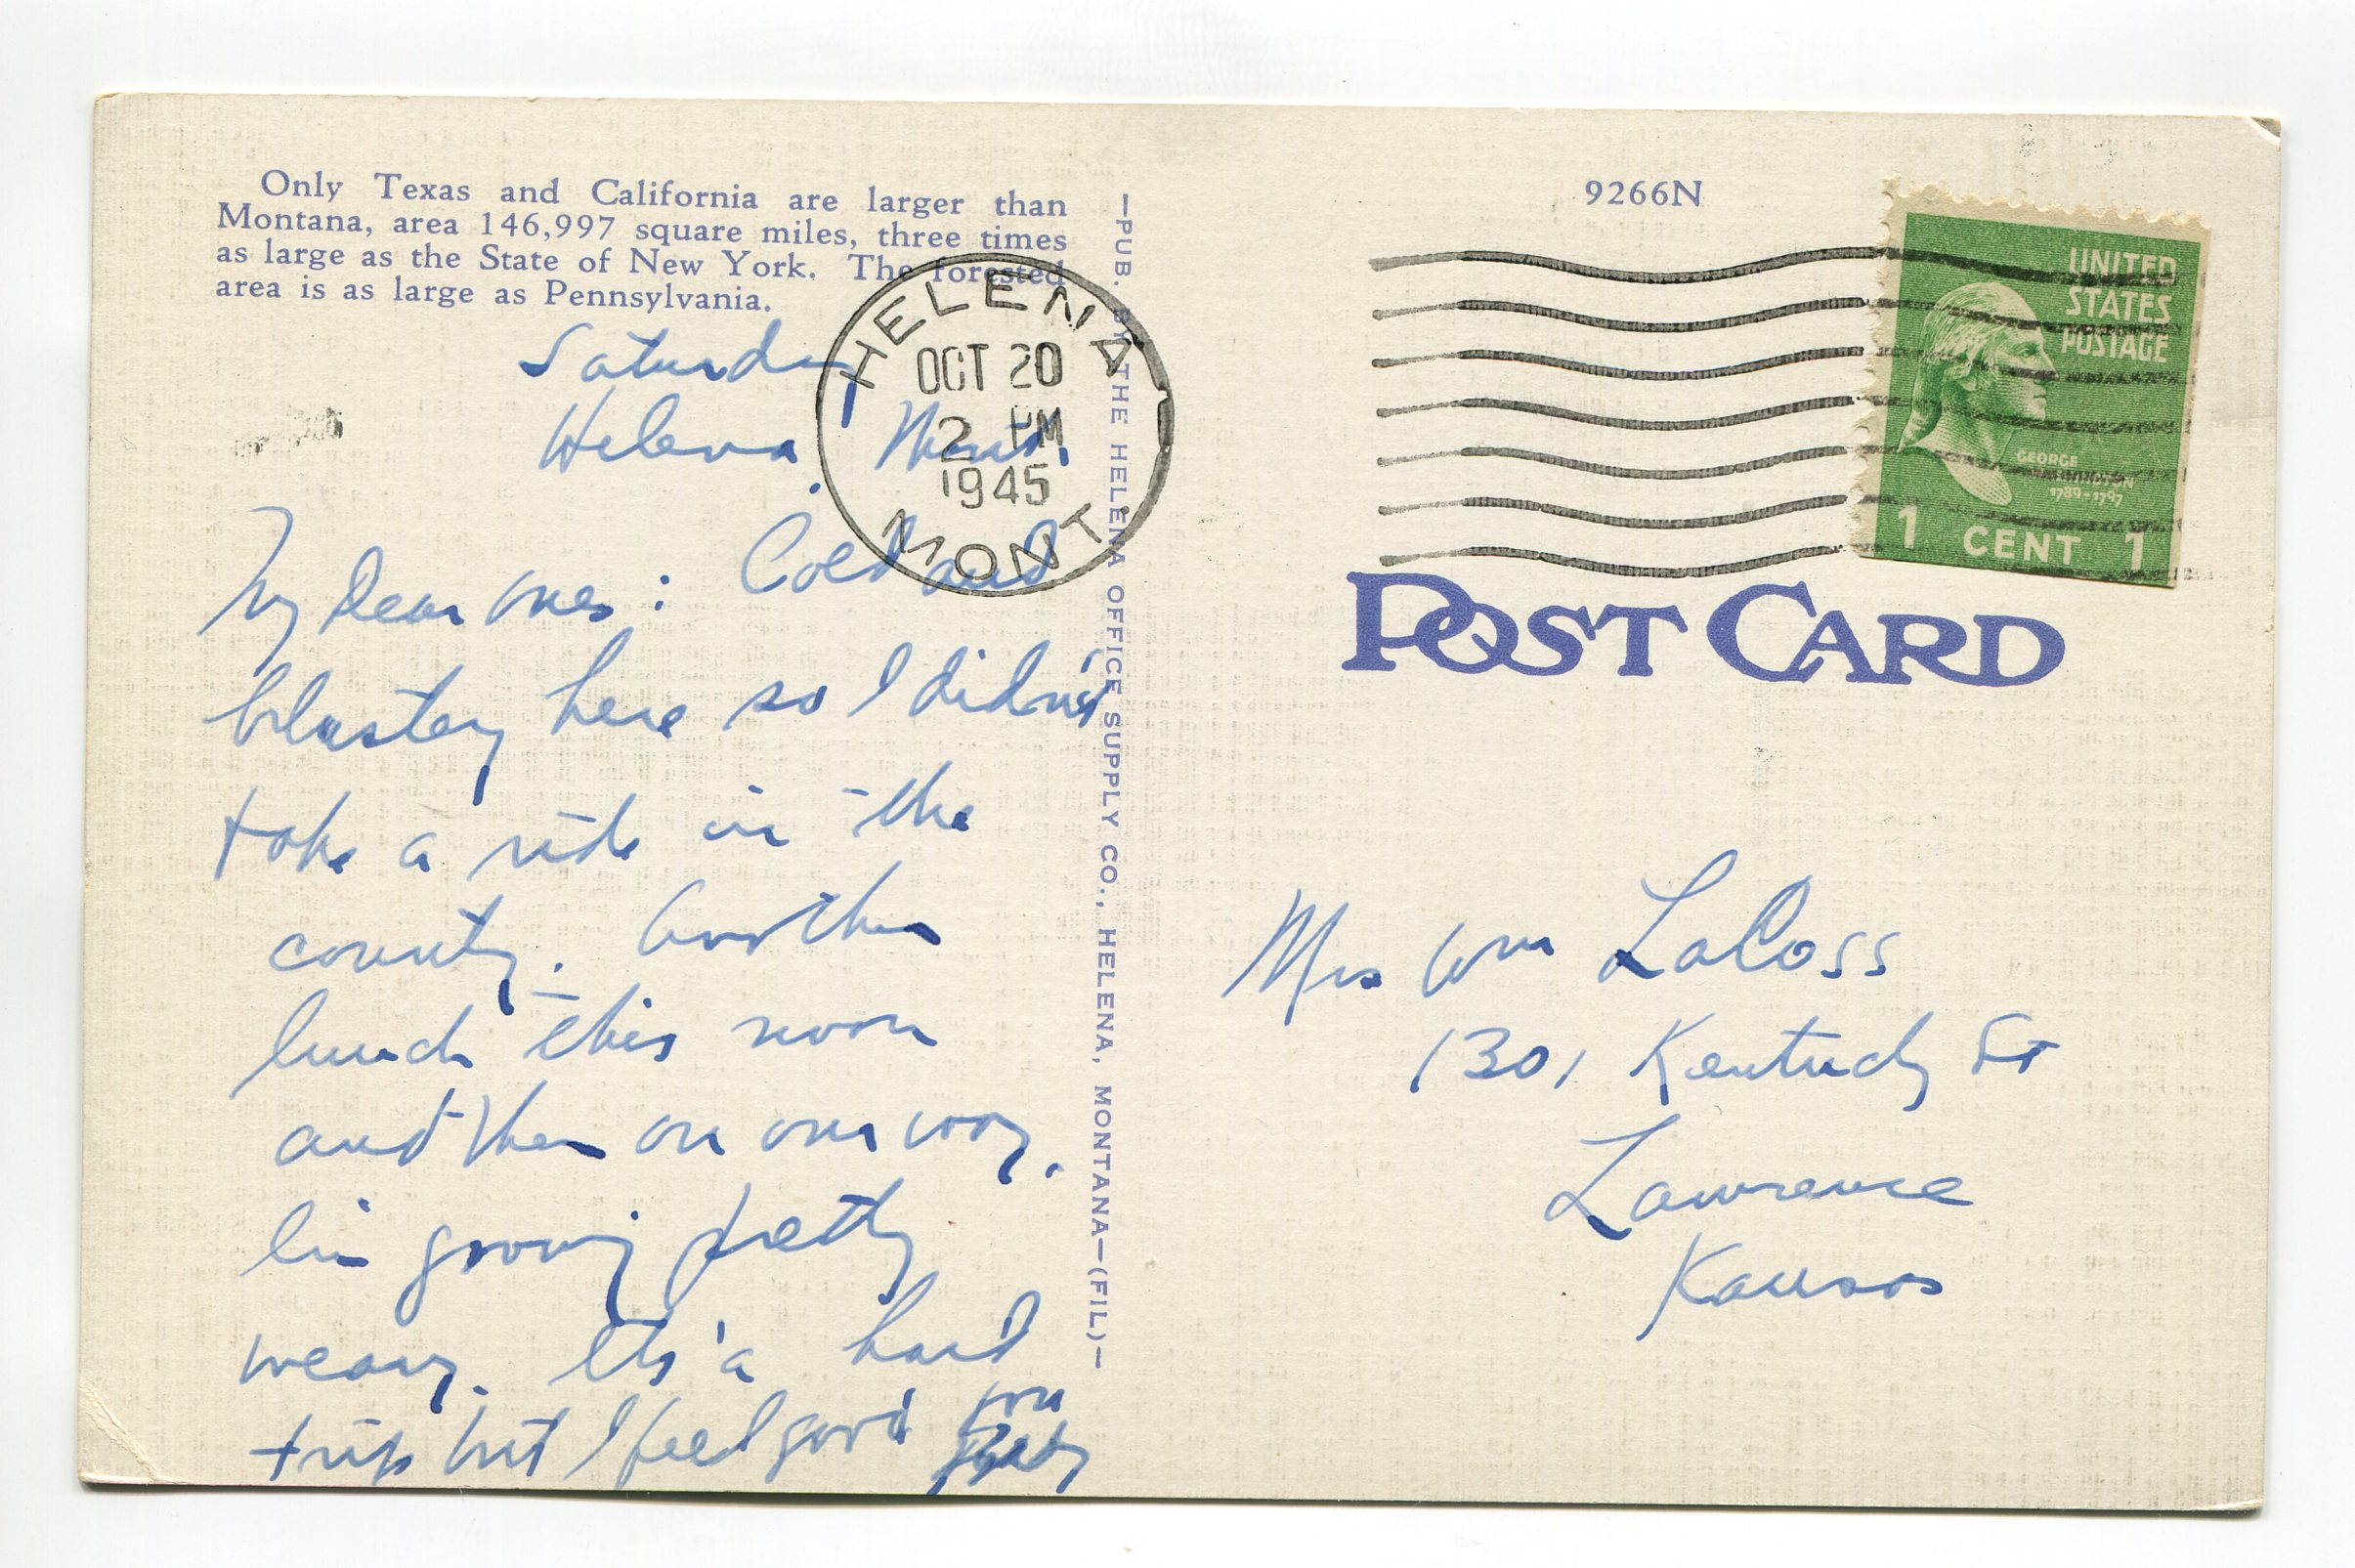 Only Texas and California are larger than
Montana, area 146,997 square miles, three times
as large as the State of New York. The forested
area is as large as Pennsylvania.
Saturday
Helena. Mont.
My dear ones: Cold and
blustery here so I didn't
take a ride in the
county. Another
lunch this noon
and then on our way.
I'm growing pretty
weary. It's a hard
trip but I feel good
—PUB. BY THE HELENA OFFICE SUPPLY CO., HELENA, MONTANA—(FIL)—
HELENA
OCT 20
2 PM
1945
MONT.
9266N
UNITED
STATES
POSTAGE
GEORGE
WASHINGTON
1789-1797
1 CENT 1
POST CARD
Mrs Wm LaCoss
1301 Kentucky St
Lawrence
Kansas